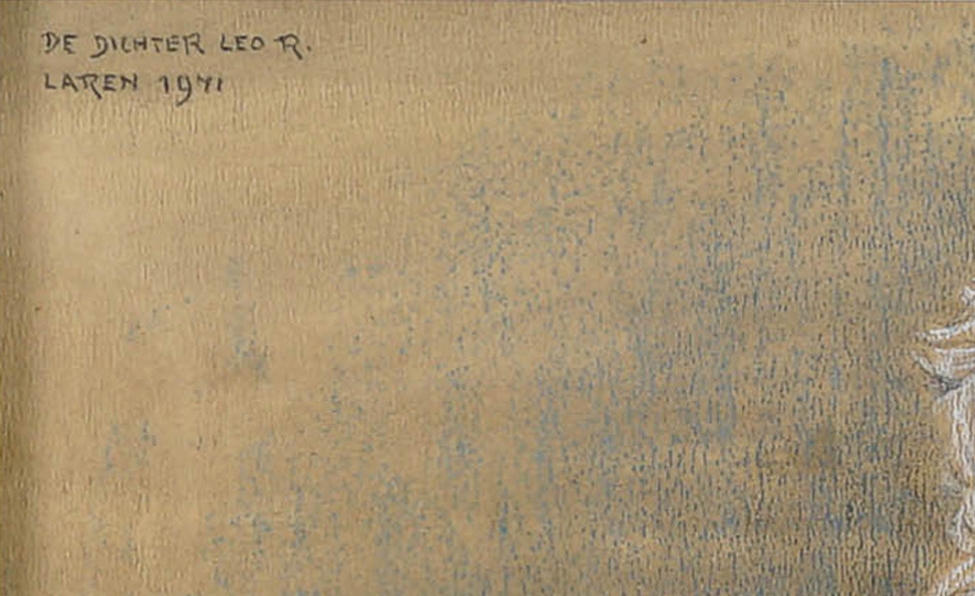 DE DICHTER LEO R.
LAREN 1941